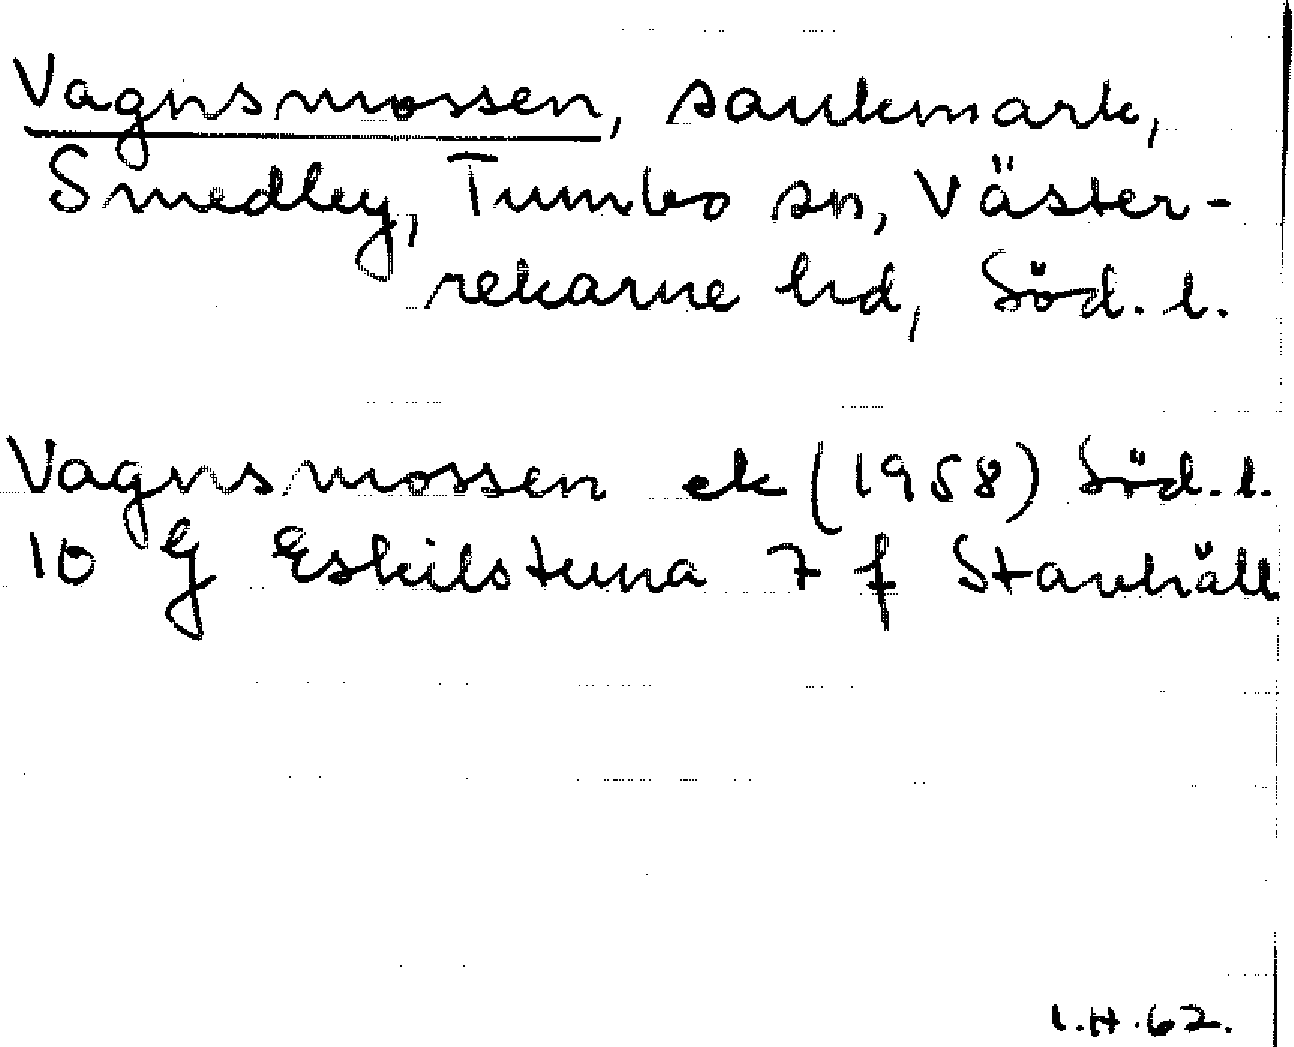 Vagnsmossen, sankmark,
Smedley, Tumbo sn, Väster-
rekarne hd, Söd. l.
Vagnsmossen ek (1958) Söd. l.
10 G Eskilstuna 7 f Stanhäll
I.H.62.